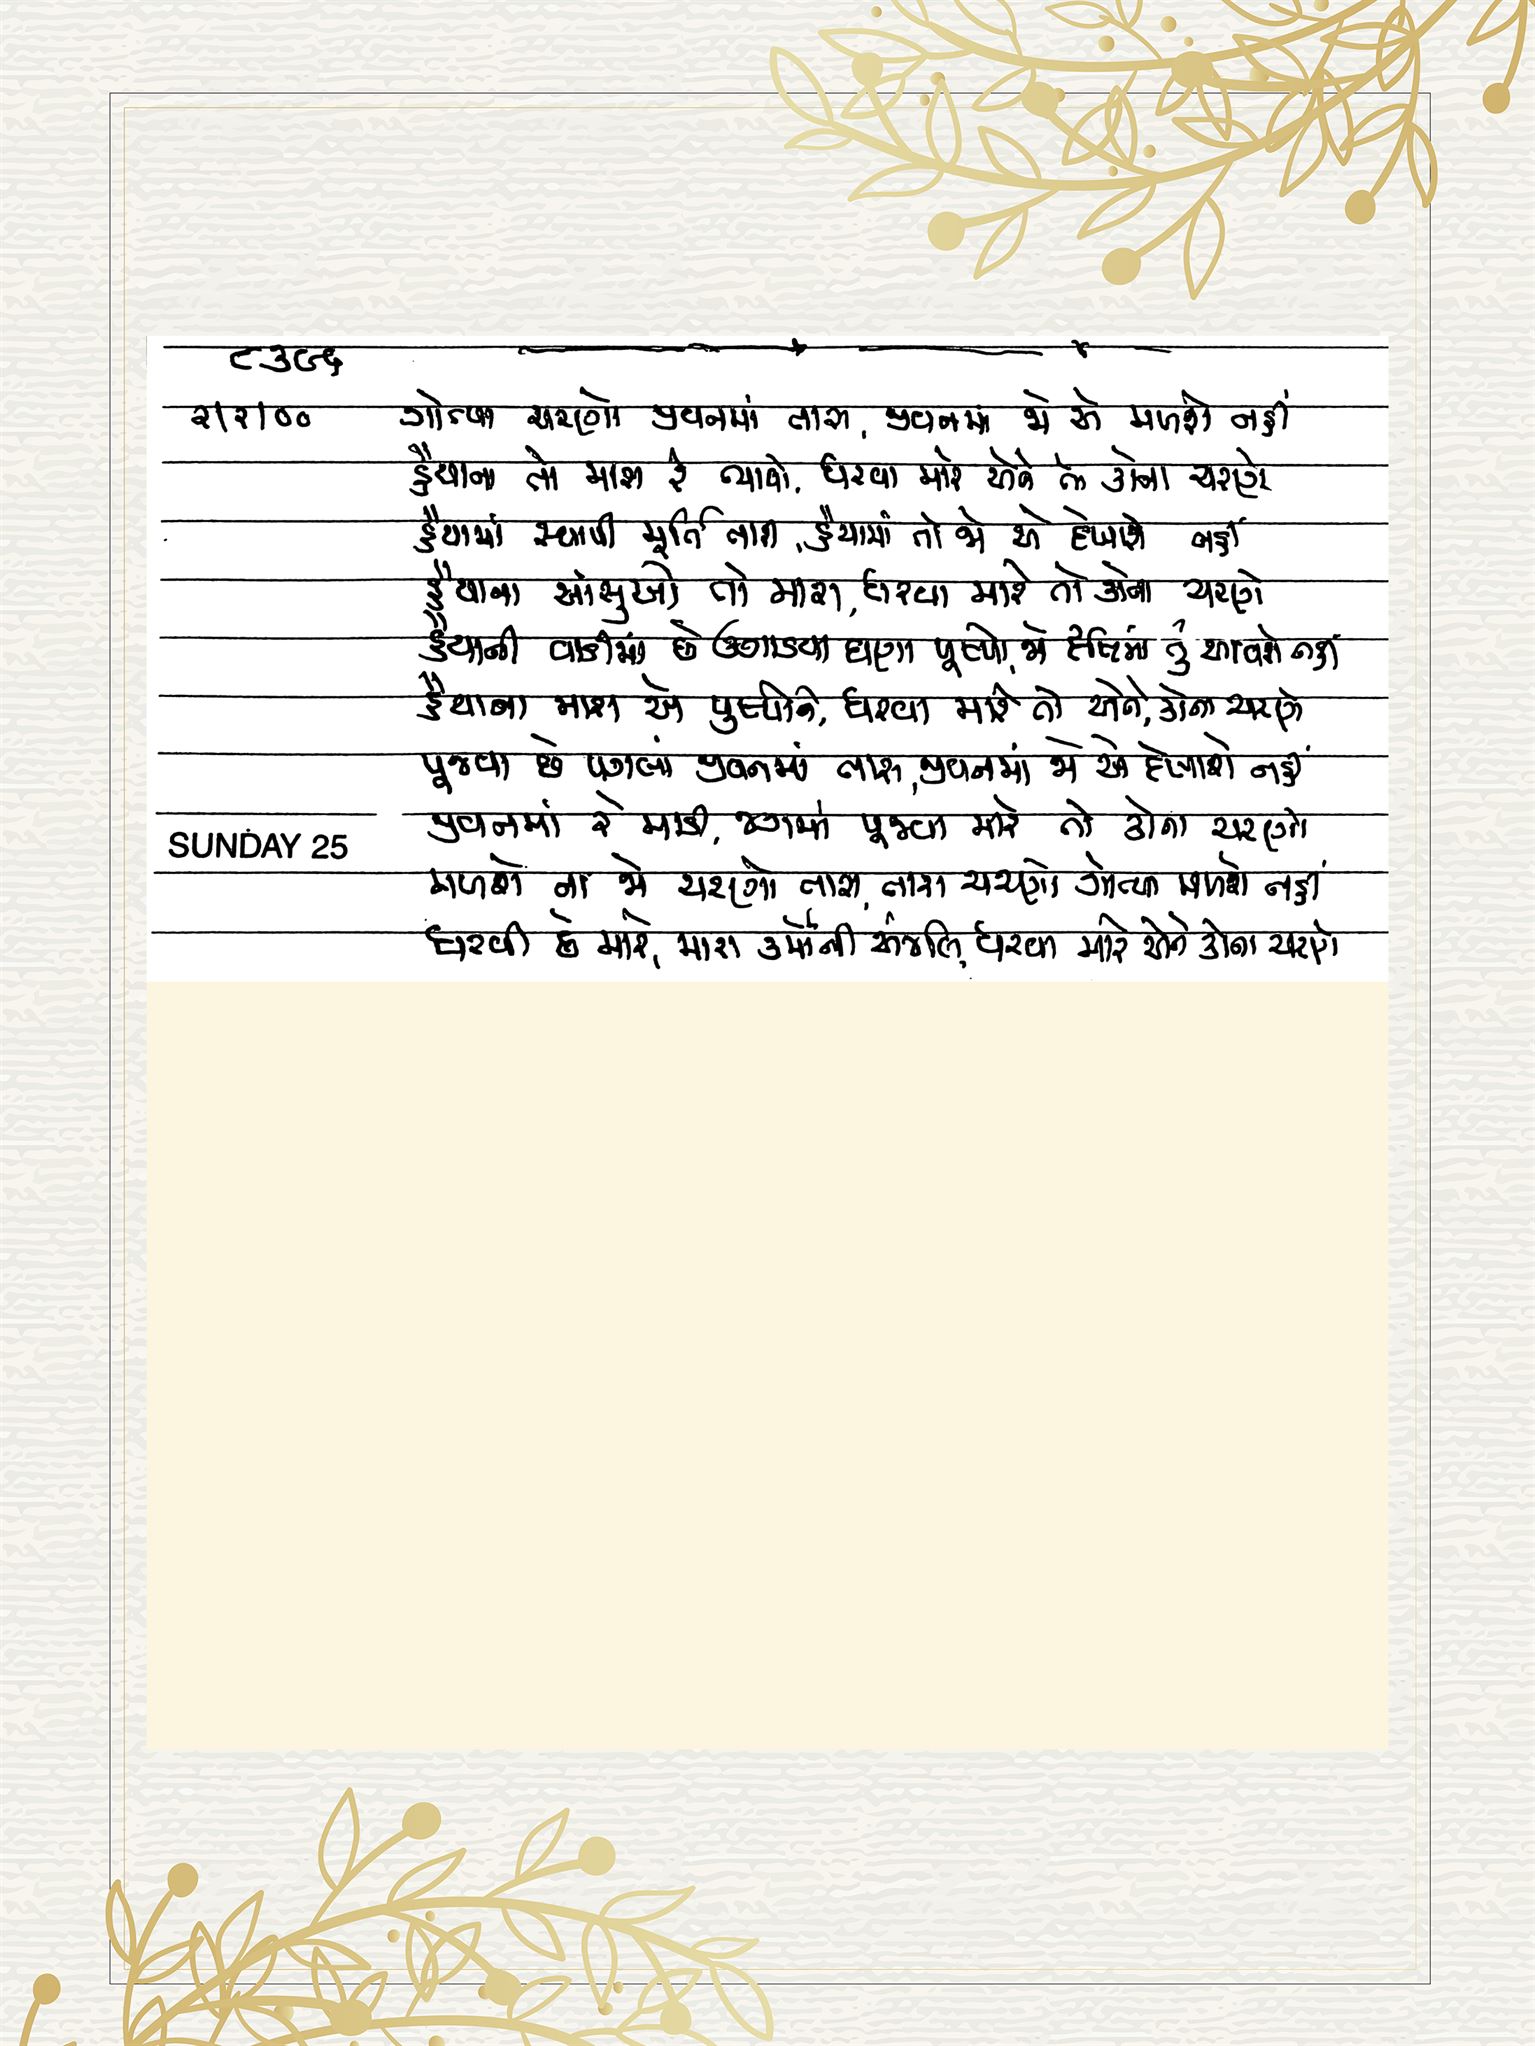 ૮૩૯૬
૨/૨/૦૦ ગોત્યા ચરણો જીવનમાં તારા, જીવનમાં જો એ મળશે નહીં
હૈયાના તો મારા રે ભાવો, ધરવા મારે એને તો કોના ચરણે
હૈયામાં સ્થાપી મૂર્તિ તારી, હૈયામાં તો જો એ દેખાશે નહીં
હૈયાના આંસુઓ તો મારા, ધરવા મારે તો કોના ચરણે
હૈયાની વાડીમાં છે ઉગાડયા ઘણા પૂષ્પો, જો તું આવશે નહીં
હૈયાના મારા એ પુષ્પોને, ધરવા મારે તો એને, કોના ચરણે
પૂજવા છે પગલાં જીવનમાં તારા, જીવનમાં જો એ દેખાશે નહીં
જીવનમાં રે માડી, જગમાં પૂજવા મારે તો કોના ચરણો
SUNDAY 25
મળશે ના જો ચરણો તારા, તારા ચરણો ગોત્યા મળશે નહીં
ધરવી છે મારે, મારા ઉર્મોની અંજલિ, ધરવા મારે એને કોના ચરણે